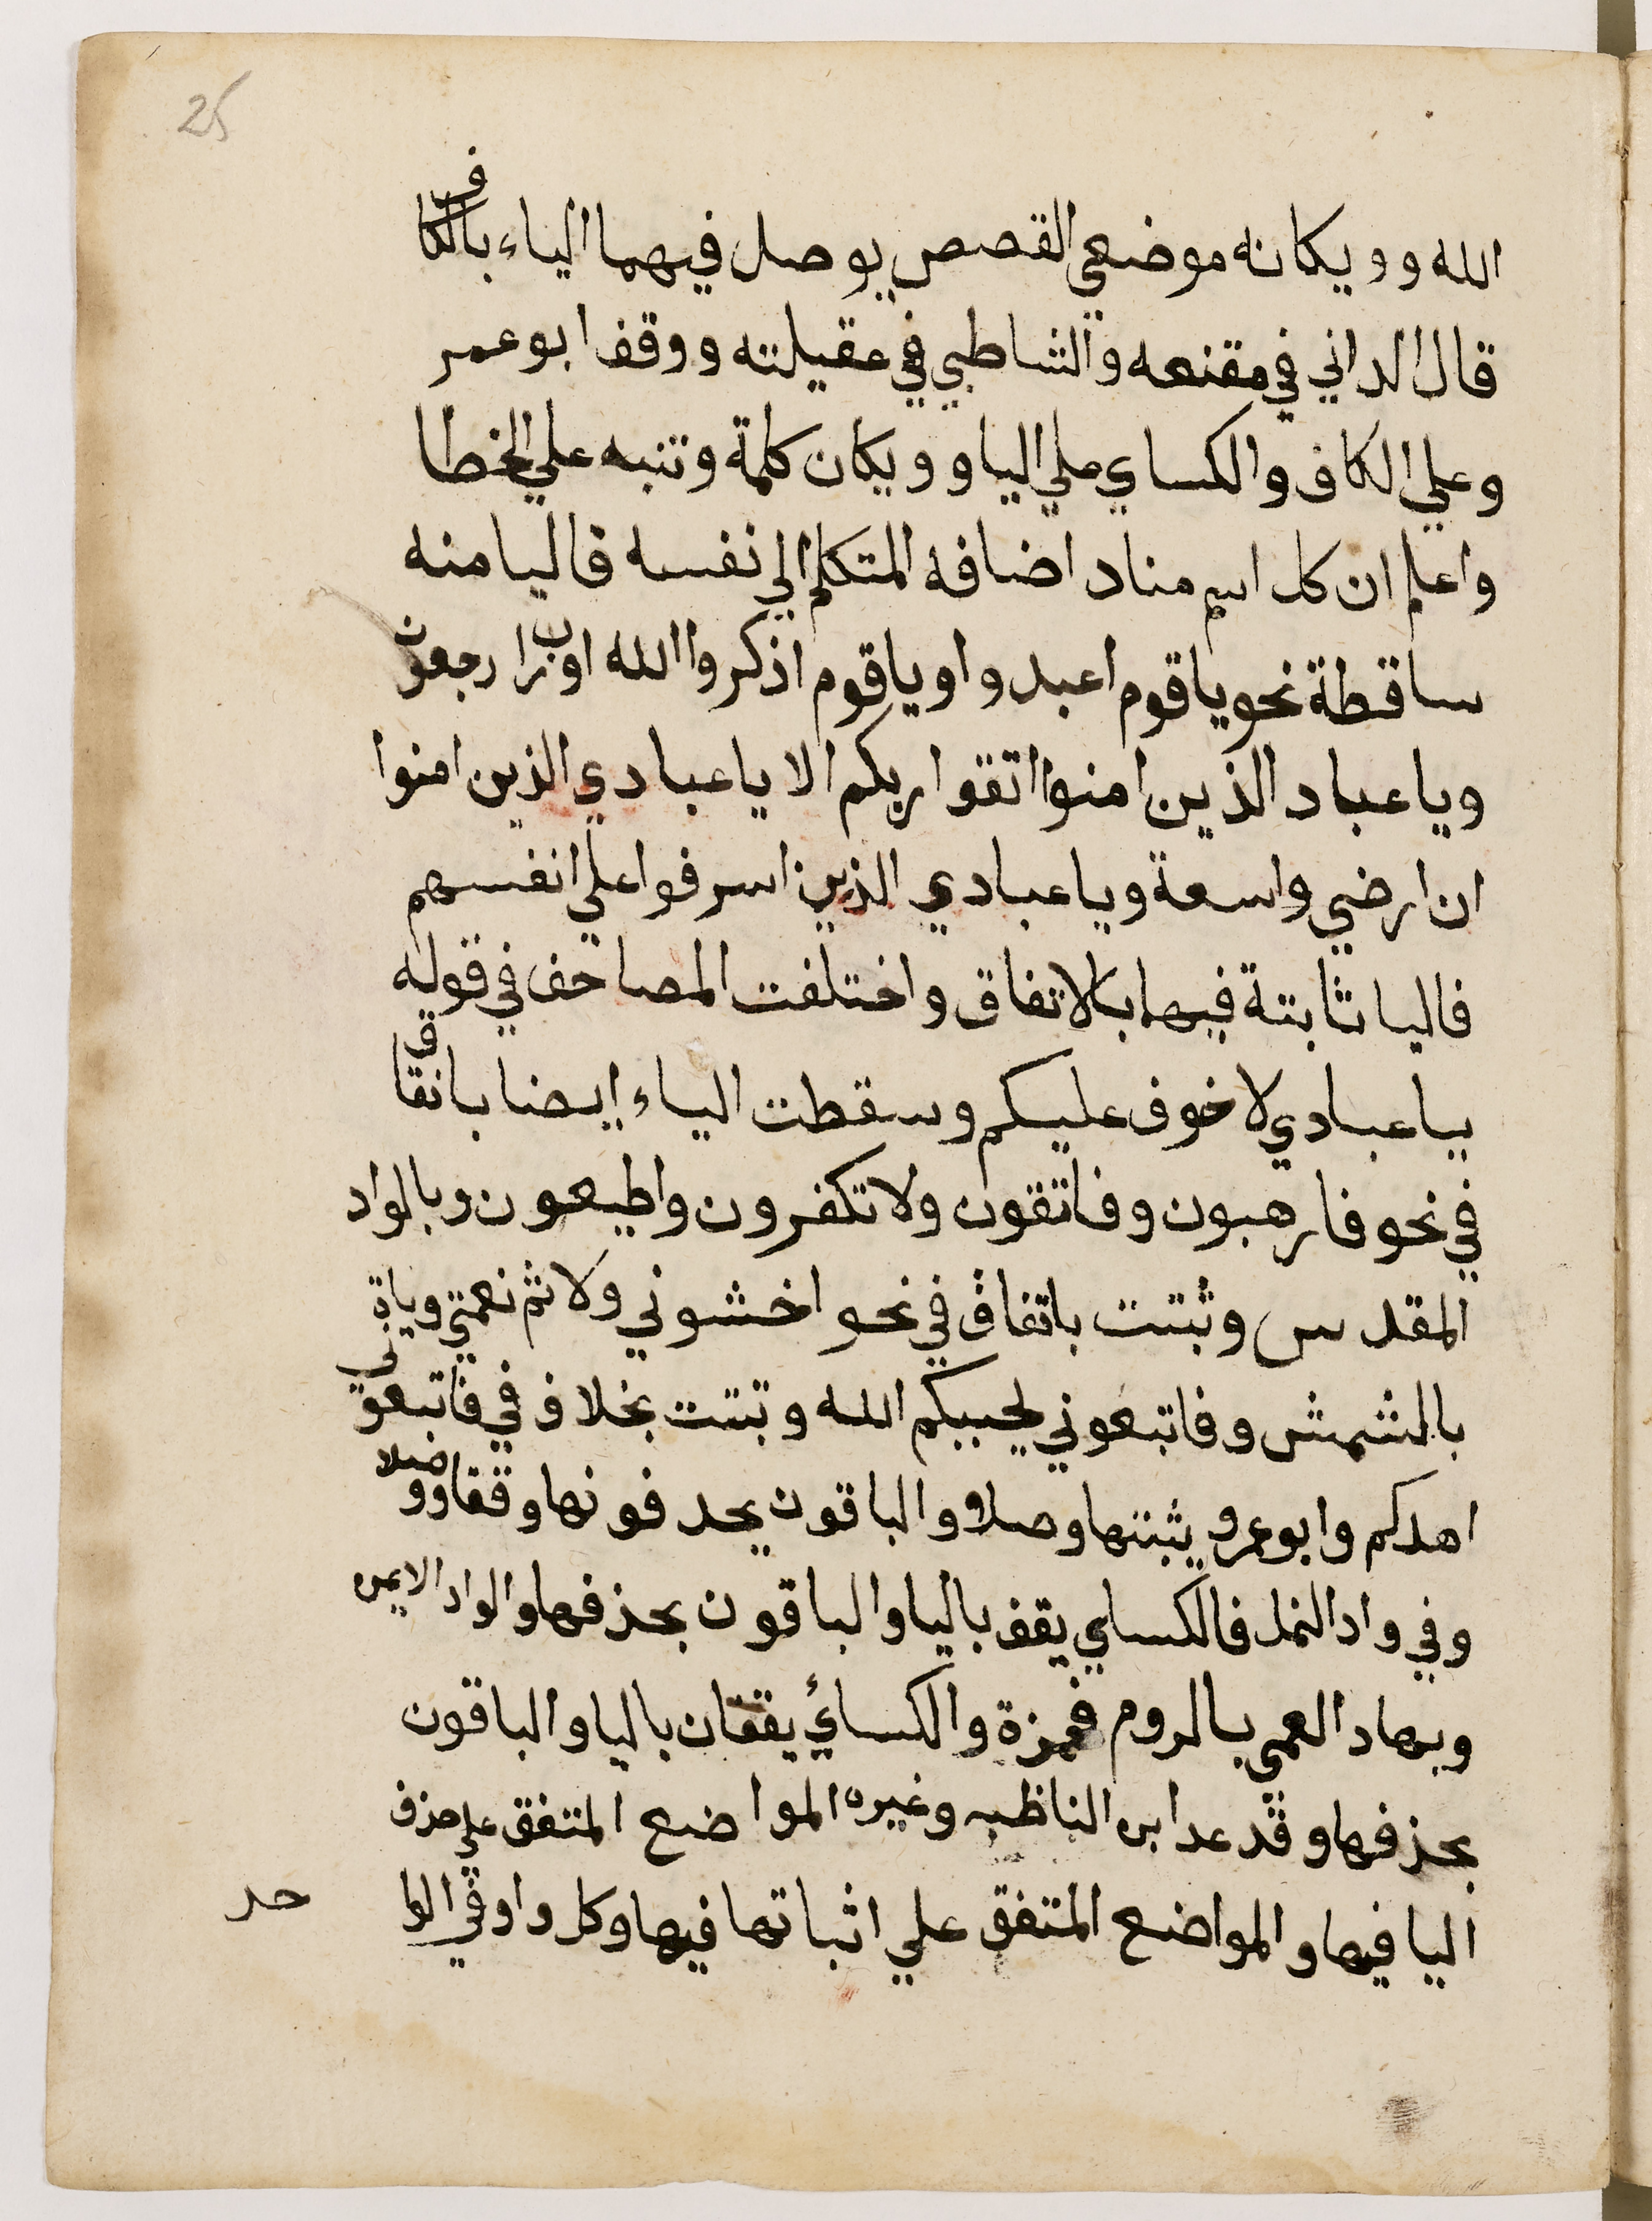 25
الله وويكانه موضعي القصص يوصل فيهما الياء بالكاف
قال الداني في مقنعه والشاطبي في عقيلته ووقف ابو عمر
وعلي الكاف والكساي علي اليا وويكان كلمة وتنبه علي الخطا
واعلم ان كل اسم مناد اضافه المتكلم الي نفسه فاليا منه
ساقطة نحو يا قوم اعبدوا ويا قوم اذكروا الله اورب ارجعون
ويا عباد الذين امنوا اتقوا ربكم الا يا عبادي الذين امنوا
ان ارضي واسعة ويا عبادي الذين اسرفوا علي انفسهم
فاليا ثابتة فيهما بالاتفاق واختلفت المصاحف في قوله
يا عبادي لا خوف عليكم وسقطت الياء ايضا باتفاق
في نحو فارهبون وفاتقون ولا تكفرون واطيعون وبالواد
المقدس وثبتت باتفاق في نحو اخشوني ولاتم نعمتي وياتي
بالشمش وفاتبعوني يحببكم الله وتبتت بخلاف في فاتبعوني
اهدكم وابو عمرو يثبتها وصلا والباقون يحدفونها وقفا ووصلا
وفي واد النمل فالكساي يقف باليا والباقون بحذفها والواد الايمن
وبهاد العمي بالروم فحمزة والكسائي يقفان باليا والباقون
بحذفها وقد عد ابن الناظم وغيره المواضع المتفق علي حزف
اليا فيها والمواضع المتفق علي اثباتها فيها وكل واو في الوا
حد